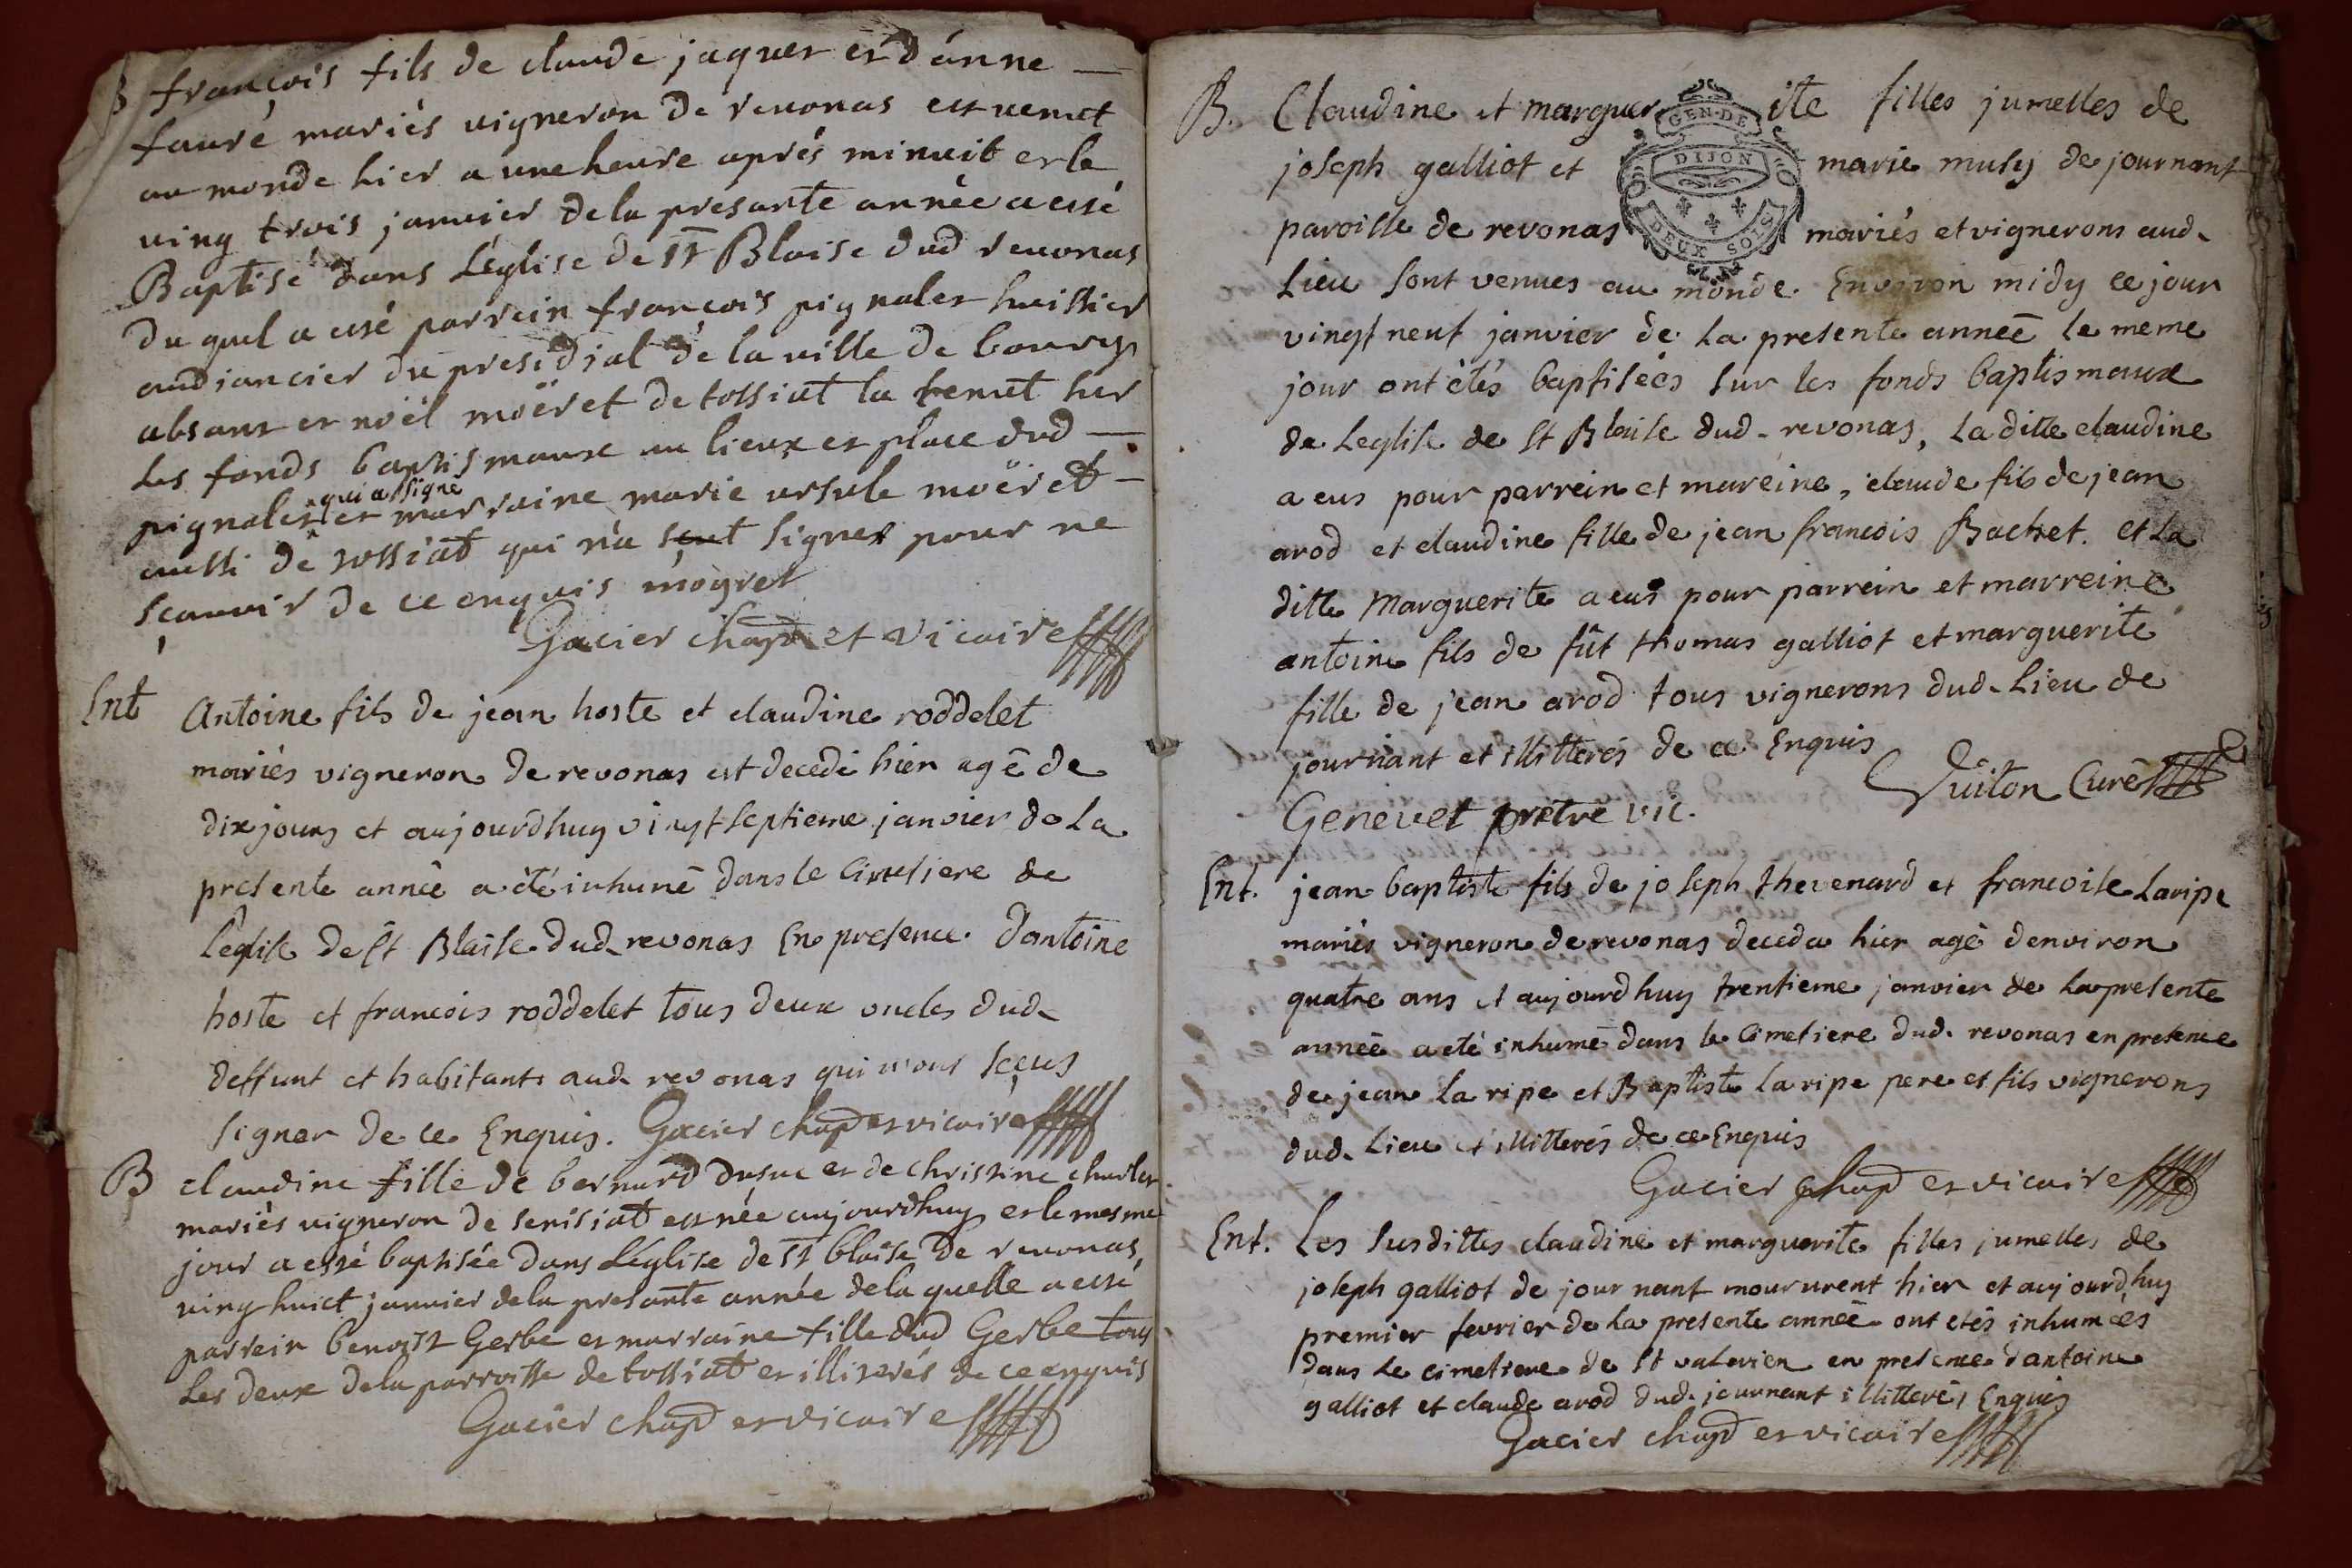 B françois fils de claude jaquer et d'anne —
fauré mariés vigneron de revonas est venut
au monde hier a une heure aprés minuit et le
ving trois janvier de la presante année a esté
Baptisé dans L'église de st Blaise dud revonas
du quel a esté parrein françois pignaler huissier
audiancier du presidial de la ville de bourg
absant et noël moëret de tossiat la tenut sur
Les fonds baptismaux au lieux et place dud —
qui a signé
pignaler et marraine marie ursule moëret —
aussi de tossiat qui n'a sçut signer pour ne
sçauoir de ce enquis moyret
Gacier chapn et vicaire
Ent Antoine fils de jean hoste et claudine roddelet
mariés vigneron de revonas est decedé hier agé de
dix jours et aujourdhuy vingt septieme janvier de La
presente année a été inhumé dans le Cimetiere de
L'eglise de St Blaise dud revonas En presence d'antoine
hoste et francois roddelet tous deux oncles dud.
deffunt et habitants aud revonas qui n'ont sceus
signer de ce Enquis. Gacier chapd et vicaire
B claudine fille de bernard dusuc et de christine charler
mariés vigneron de senisiat est née aujourdhuy et le mesme
jour a esté baptisée dans L'église de st blaise de revonas
ving huict janvier de la presante année de la quelle a esté
parrein benoist Gerbe et marraine fille dud Gerbe tous
Les deux de la parroisse de tossiat et illiterés de ce enquis
Gacier chapd et vicaire
B. Claudine et marguerite filles jumelles de
GEN. DE
joseph galliot et marie musy de journant
DIJON
paroisse de revonas mariés et vignerons aud.
DEUX SOLS
Lieu sont venues au monde Environ midy ce jour
vingt neuf janvier de la presente anneé le meme
jour ont étés baptiseés sur les fonds baptismaux
de Leglise de st Blaise dud. revonas, La ditte claudine
a eus pour parrein et mareine, claude fils de jean
arod et claudine fille de jean francois Bachet. et La
ditte Marguerite a eus pour parrein et marreine
antoine fils de fût thomas galliot et marguerite
fille de jean arod tous vignerons dud. Lieu de
journant et illitterés de ce Enquis
Guiton Curé
Genevet prêtre vic.
Ent. jean baptiste fils de joseph thevenard et francoise Laripe
mariés vigneron de revonas deceda hier agé denviron
quatre ans et aujourdhuy trentieme janvier de la presente
anneé a eté inhumé dans le Cimetiere dud. revonas en presence
de jean La ripe et Baptiste La ripe pere et fils vignerons
dud. Lieu et illitterés de ce Enquis
Gacier chapd et vicaire
Ent. Les susdittes claudine et marguerite filles jumelles de
joseph galliot de journant moururent hier et aujourdhuy
premier fevrier de la presente anneé ont etés inhumeés
dans Le cimetiere de st valerien en presence d'antoine
galliot et claude arod dud. journant illitterés Enquis
Gacier chapd et vicaire